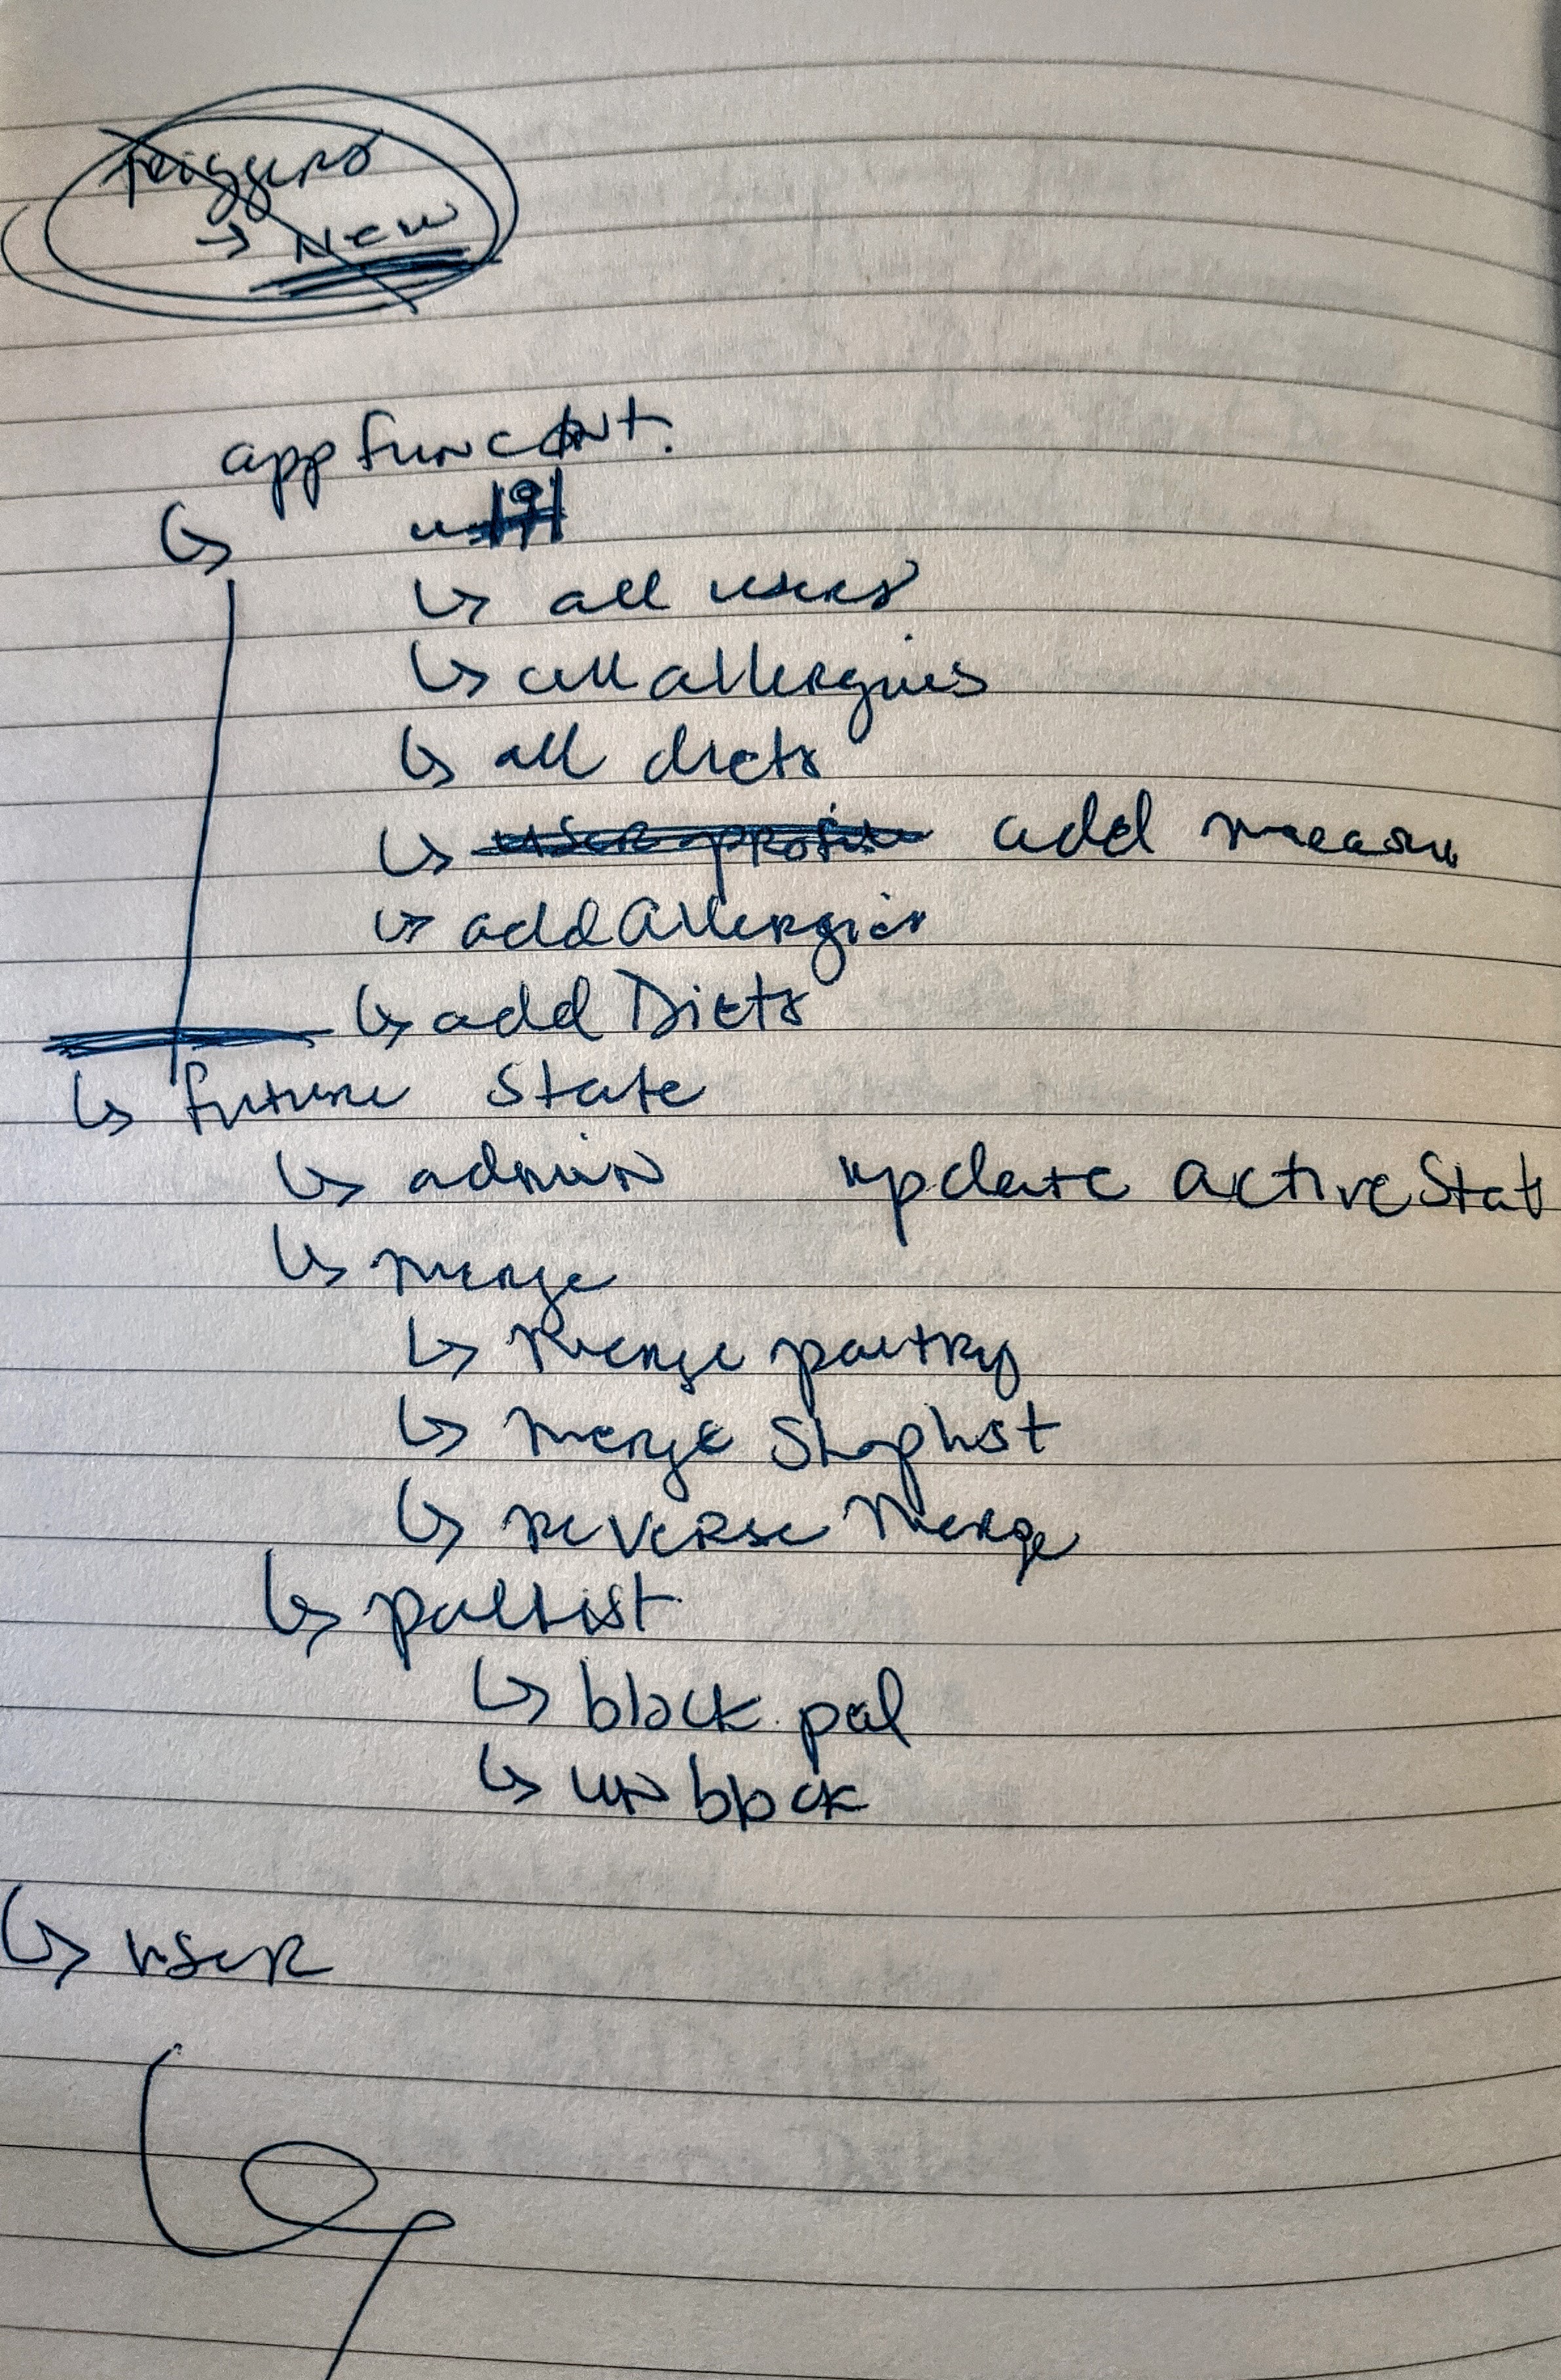 Triggers
→ New
app funct.
↳ all users
↳ all allergies
↳ all diets
↳ user profile add measu
↳ add Allergies
↳ add Diets
↳ future state
↳ admin update activeStat
↳ merge
↳ Merge pantry
↳ merge Shoplist
↳ reverse Merge
↳ palList
↳ block pal
↳ un block
↳ user